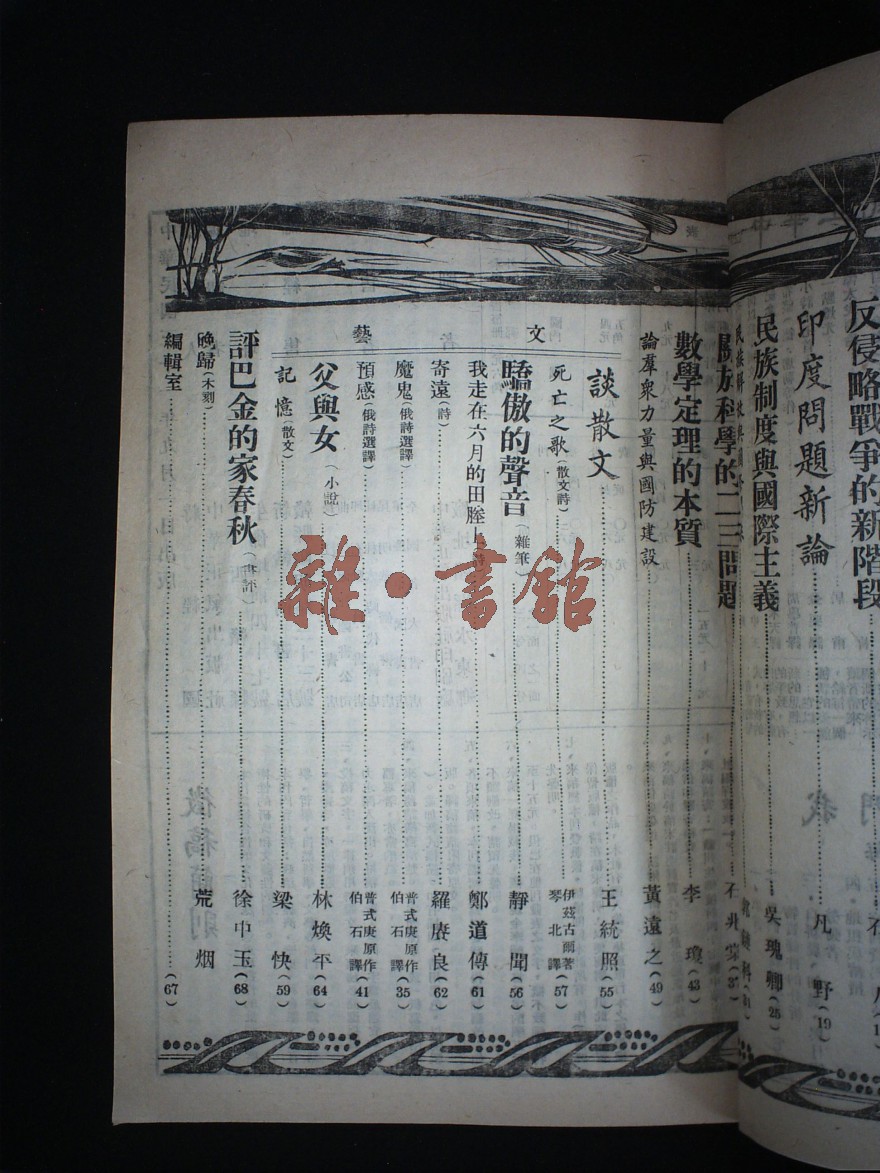 反侵略戰爭的新階段
印度問題新論 凡野(19)
民族制度與國際主義 吳瑰卿(25)
關於科學的二三問題
數學定理的本質 李瓊(43)
論羣衆力量與國防建設 黃遠之(49)
文藝
談散文 王統照(55)
死亡之歌(散文詩) 伊茲古爾著 琴北譯(57)
驕傲的聲音(雜筆) 靜聞(56)
我走在六月的田塍上 鄭道傳(61)
寄遠(詩) 羅賡良(62)
魔鬼(俄詩選譯) 普式庚原作 伯石譯(35)
預感(俄詩選譯) 普式庚原作 伯石譯(41)
父與女(小說) 林煥平(64)
記憶(散文) 梁快(59)
評巴金的家春秋(書評) 徐中玉(68)
晚歸(木刻) 荒烟
編輯室 (67)
雜·書館